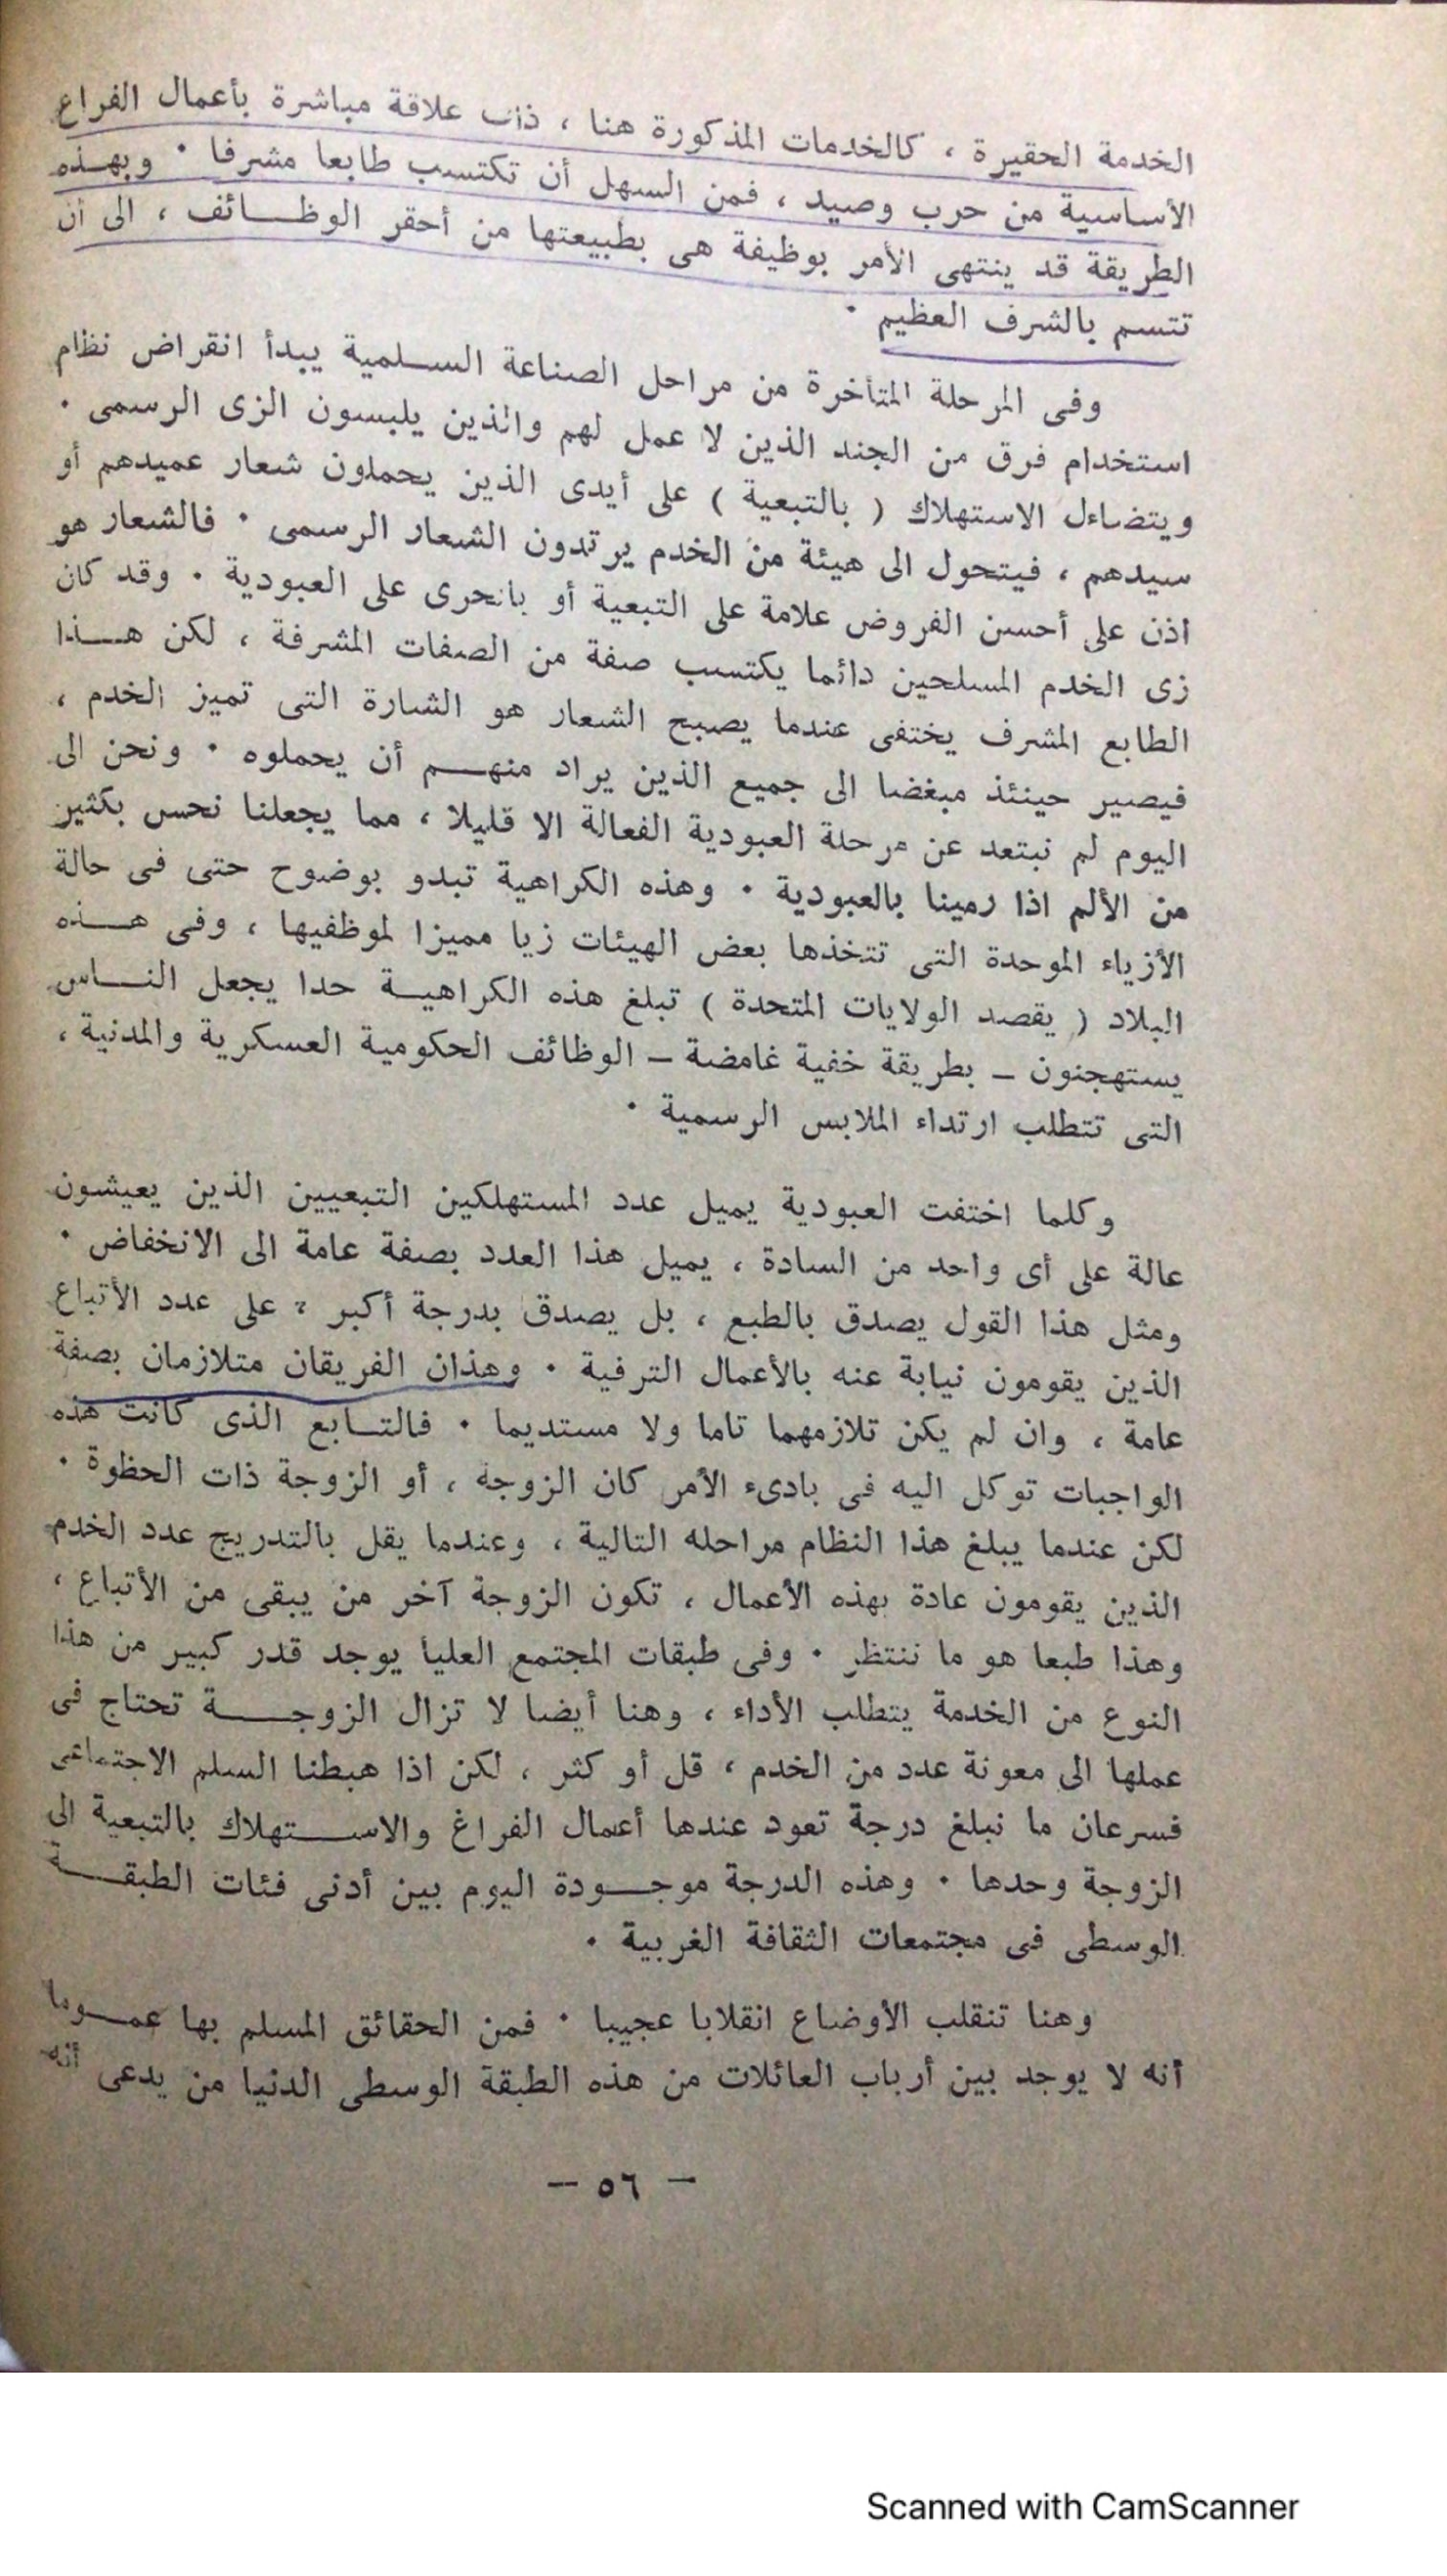 الخدمة الحقيرة ، كالخدمات المذكورة هنا ، ذات علاقة مباشرة بأعمال الفراغ
الأساسية من حرب وصيد ، فمن السهل أن تكتسب طابعا مشرفا · وبهذه
الطريقة قد ينتهى الأمر بوظيفة هى بطبيعتها من أحقر الوظائف ، الى أن
تتسم بالشرف العظيم ·
وفى المرحلة المتأخرة من مراحل الصناعة السلمية يبدأ انقراض نظام
استخدام فرق من الجند الذين لا عمل لهم والذين يلبسون الزى الرسمى ·
ويتضاءل الاستهلاك ( بالتبعية ) على أيدى الذين يحملون شعار عميدهم أو
سيدهم ، فيتحول الى هيئة من الخدم يرتدون الشعار الرسمى · فالشعار هو
اذن على أحسن الفروض علامة على التبعية أو بالحرى على العبودية · وقد كان
زى الخدم المسلحين دائما يكتسب صفة من الصفات المشرفة ، لكن هذا
الطابع المشرف يختفى عندما يصبح الشعار هو الشارة التى تميز الخدم ،
فيصير حينئذ مبغضا الى جميع الذين يراد منهم أن يحملوه · ونحن الى
اليوم لم نبتعد عن مرحلة العبودية الفعالة الا قليلا ، مما يجعلنا نحس بكثير
من الألم اذا رمينا بالعبودية · وهذه الكراهية تبدو بوضوح حتى فى حالة
الأزياء الموحدة التى تتخذها بعض الهيئات زيا مميزا لموظفيها ، وفى هذه
البلاد ( يقصد الولايات المتحدة ) تبلغ هذه الكراهية حدا يجعل الناس
يستهجنون – بطريقة خفية غامضة – الوظائف الحكومية العسكرية والمدنية ،
التى تتطلب ارتداء الملابس الرسمية ·
وكلما اختفت العبودية يميل عدد المستهلكين التبعيين الذين يعيشون
عالة على أى واحد من السادة ، يميل هذا العدد بصفة عامة الى الانخفاض ·
ومثل هذا القول يصدق بالطبع ، بل يصدق بدرجة أكبر ، على عدد الأتباع
الذين يقومون نيابة عنه بالأعمال الترفية · وهذان الفريقان متلازمان بصفة
عامة ، وان لم يكن تلازمهما تاما ولا مستديما · فالتابع الذى كانت هذه
الواجبات توكل اليه فى بادىء الأمر كان الزوجة ، أو الزوجة ذات الحظوة ·
لكن عندما يبلغ هذا النظام مراحله التالية ، وعندما يقل بالتدريج عدد الخدم
الذين يقومون عادة بهذه الأعمال ، تكون الزوجة آخر من يبقى من الأتباع ،
وهذا طبعا هو ما ننتظر · وفى طبقات المجتمع العليا يوجد قدر كبير من هذا
النوع من الخدمة يتطلب الأداء ، وهنا أيضا لا تزال الزوجة تحتاج فى
عملها الى معونة عدد من الخدم ، قل أو كثر ، لكن اذا هبطنا السلم الاجتماعى
فسرعان ما نبلغ درجة تعود عندها أعمال الفراغ والاستهلاك بالتبعية الى
الزوجة وحدها · وهذه الدرجة موجودة اليوم بين أدنى فئات الطبقة
الوسطى فى مجتمعات الثقافة الغربية ·
وهنا تنقلب الأوضاع انقلابا عجيبا · فمن الحقائق المسلم بها عموما
أنه لا يوجد بين أرباب العائلات من هذه الطبقة الوسطى الدنيا من يدعى أنه
– ٥٦ –
Scanned with CamScanner